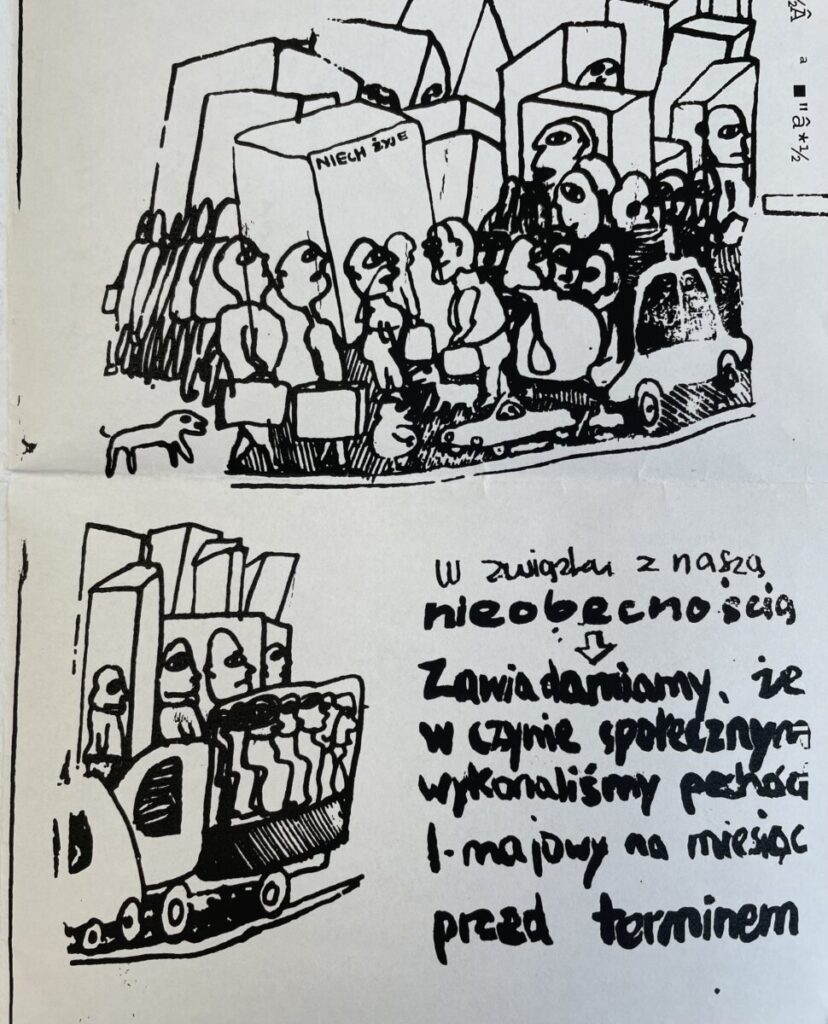 ½Â a ■"â*½
NIECH ŻYJE
W związku z naszą
nieobecnością
Zawiadamiamy, że
w czynie społecznym
wykonaliśmy pochód
1-majowy na miesiąc
przed terminem